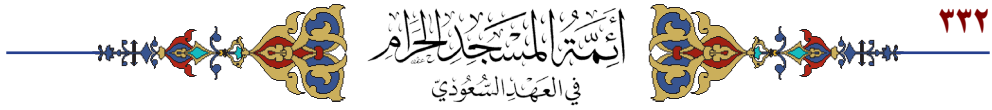 ٣٣٢
أَئِمَّةُ المَسْجِدِ الحَرَامِ
فِي العَهْدِ السُّعُودِيِّ